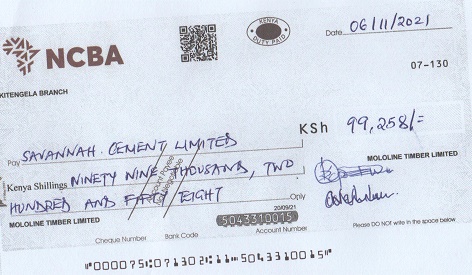 KENYA
DUTY PAID
NCBA
Date 06/11/2021
07-130
KITENGELA BRANCH
Pay SAVANNAH CEMENT LIMITED
KSh 99,258/=
Kenya Shillings NINETY NINE THOUSAND, TWO
HUNDRED AND EIGHT Only
MOLOLINE TIMBER LIMITED
20/09/21
5043310015
MOLOLINE TIMBER LIMITED
Cheque Number Bank Code Account Number
Please DO NOT write in the space below
"000075:071302:11-5043310015"